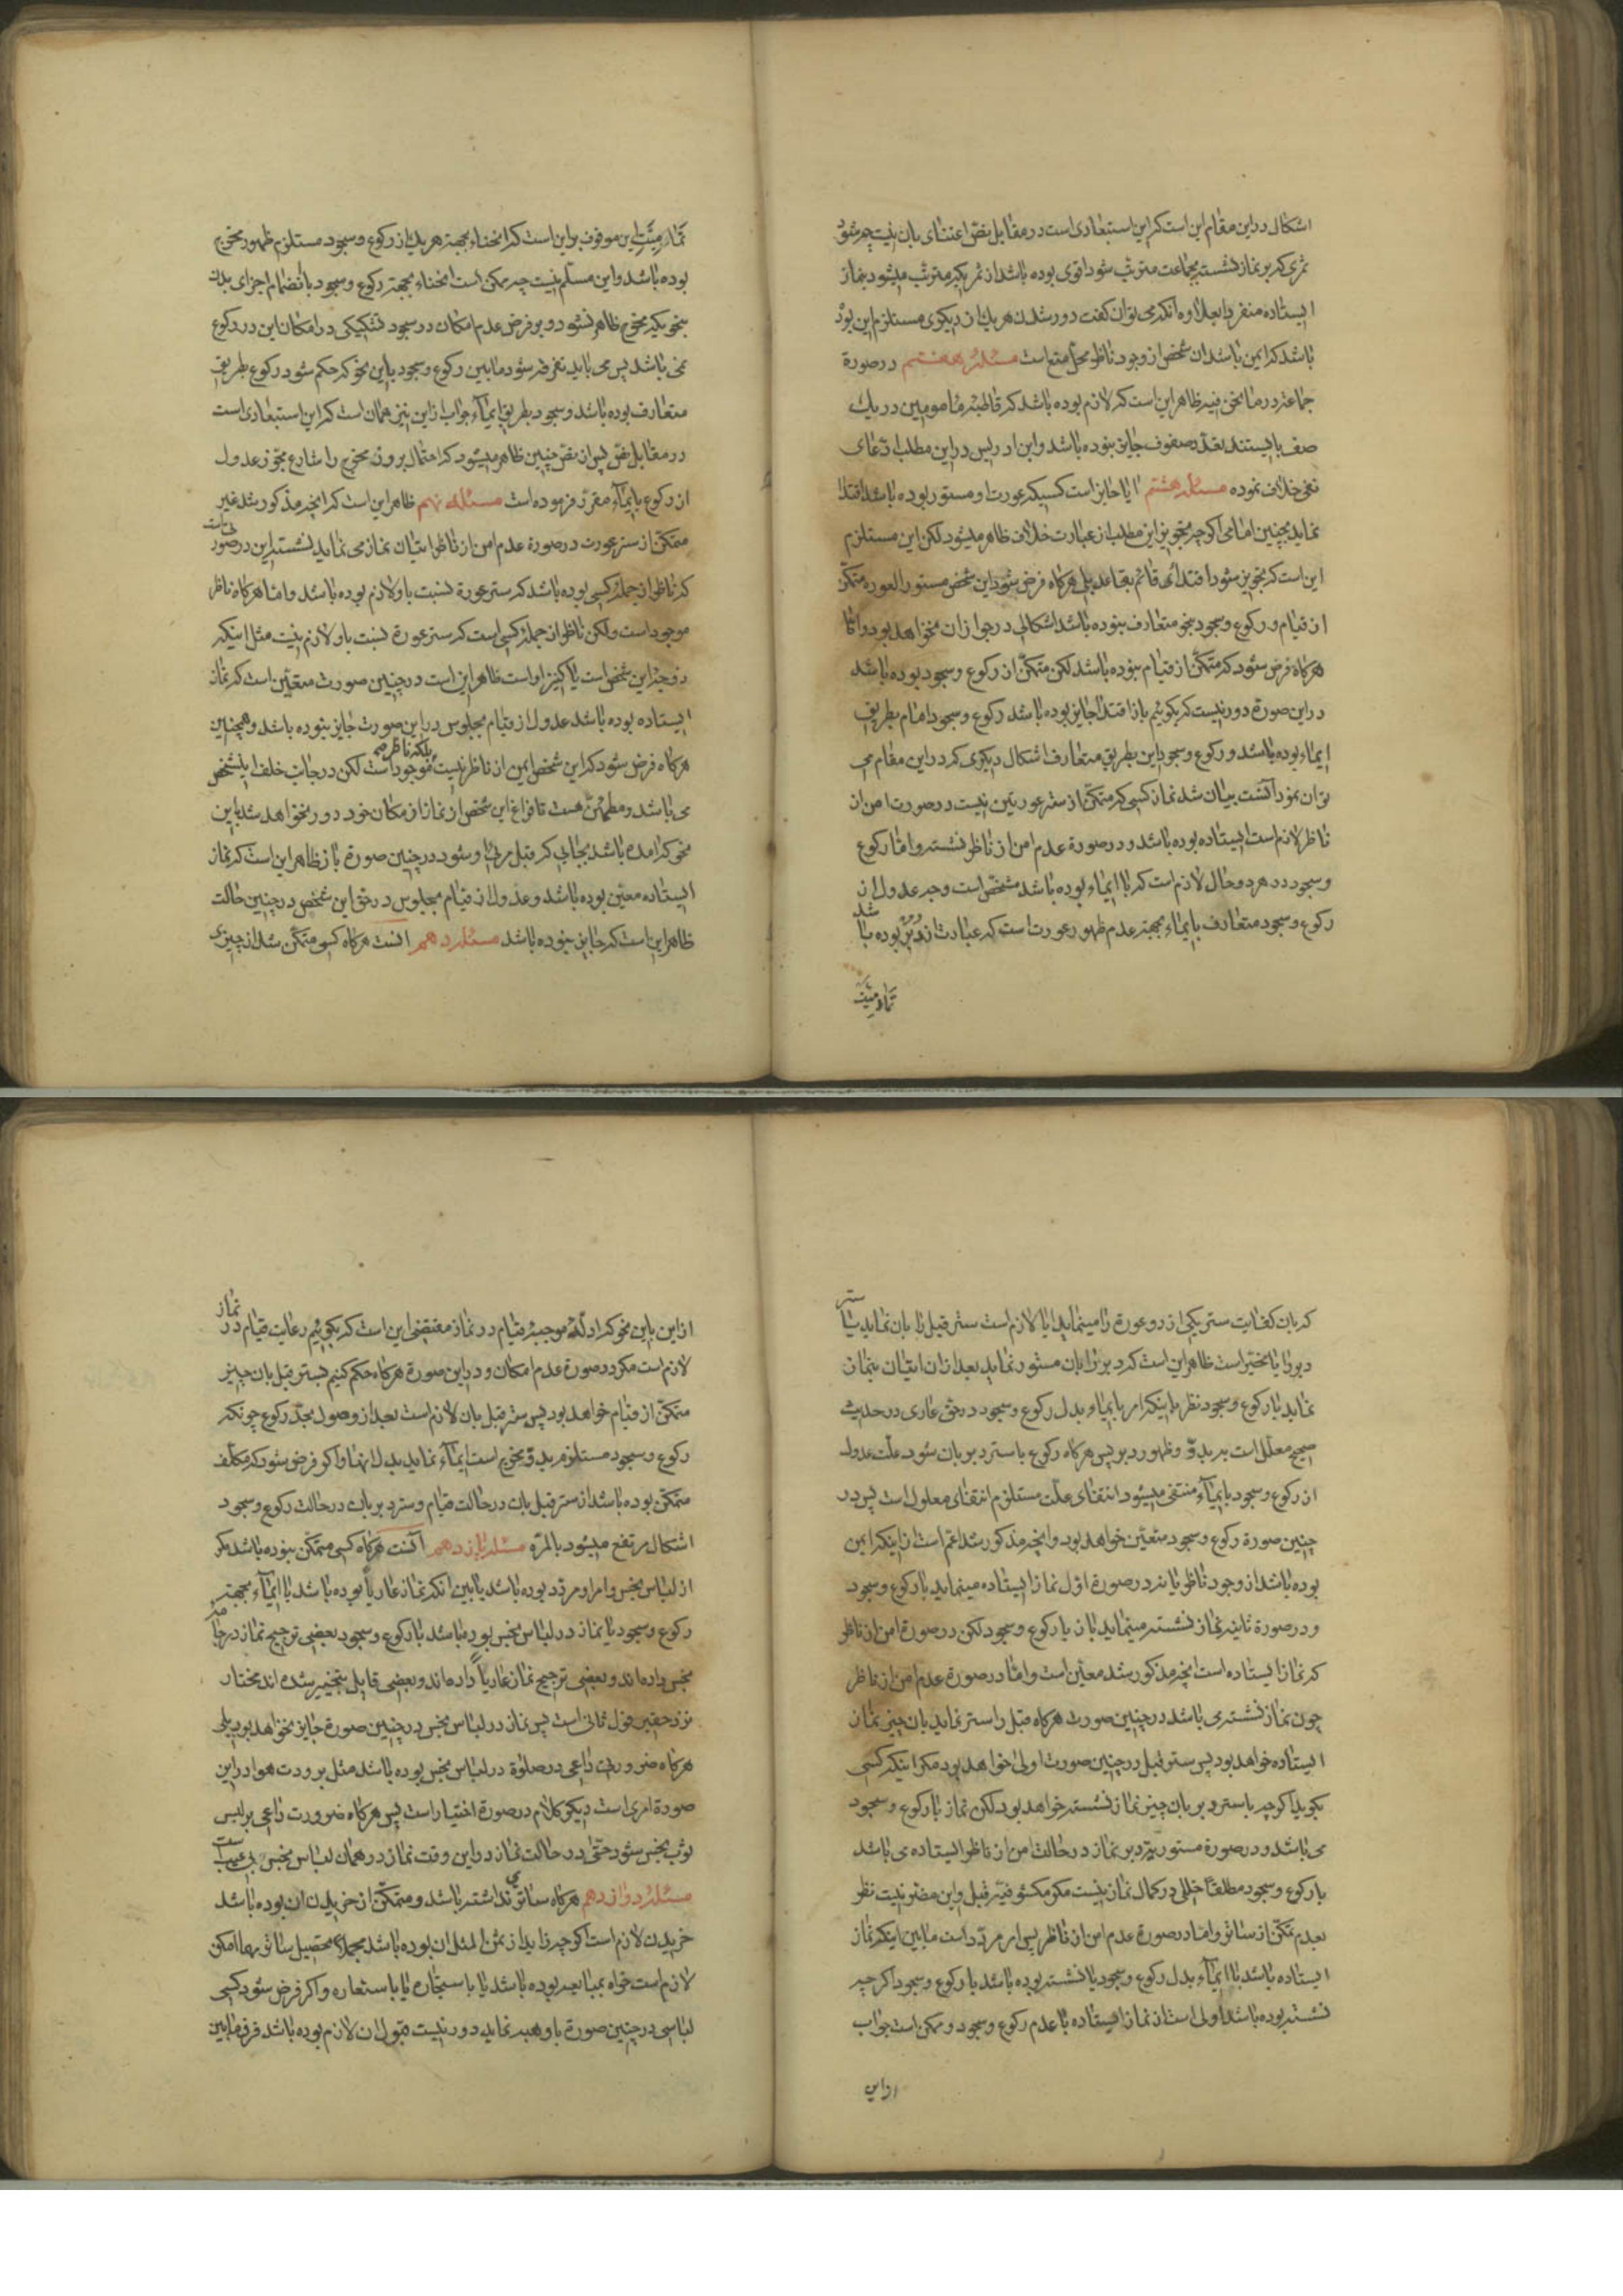 اشکال در این مقام این است که این استبعادی است در مقابل نص اعتنای بآن نیست چه میشود
ثمری که بر نماز نشسته بجماعت مترتب شود اقوی بوده باشد از ثمریکه مترتب میشود بنماز
ایستاده منفردا بعلاوه آنکه می توان گفت دور شدن هر یک از دیگری مستلزم این بود
باشد که ایمن باشد ان شخص از وجود ناظر محل منع است مسئله هفتم در صورة
جماعة در ما نحن فیه ظاهر این است که لازم بوده باشد که قاطبه مامومین در یک
صف بایستند تعدد صفوف جایز نبوده باشد و ابن ادریس در این مطلب ادعای
نفی خلاف نموده مسئله هشتم ایا جایز است کسیکه عورت او مستور بوده باشد اقتدا
نماید بچنین امامی اگرچه تجویز این مطلب از عبارت خلاف ظاهر میشود لکن این مستلزم
این است که تجویز شود اقتدای قائم بقاعد بلی هرگاه فرض شود این شخص مستور العوره متمکن
از قیام و رکوع و سجود بنحو متعارف نبوده باشد اشکالی در جواز ان نخواهد بود و اما
هرگاه فرض شود که متمکن از قیام نبوده باشد لکن متمکن از رکوع و سجود بوده باشد
در این صورة دور نیست که بگوئیم باز اقتدا جایز بوده باشد رکوع و سجود امام بطریق
ایماء بوده باشد و رکوع و سجود این بطریق متعارف اشکال دیگری که در این مقام می
توان نمود آنست بیان شد نماز کسی که متمکن از ستر عورتین نیست در صورت امن از
ناظر لازم است ایستاده بوده باشد و در صورة عدم امن از ناظر نشسته و اما رکوع
و سجود در هر دو حال لازم است که با ایماء بوده باشد مشخص است وجه عدول از
رکوع و سجود متعارف بایماء بجهة عدم ظهور عورت است که عبارت از دبر بوده باشد
تمامیت
تمامیت این موقوف براین است که انحناء بجهة هر یک از رکوع و سجود مستلزم ظهور مخرج
بوده باشد و این مسلم نیست چه ممکن است انحناء بجهة رکوع و سجود بانضمام اجزای بدن
بنحویکه مخرج ظاهر نشود و بر فرض عدم امکان در سجود تشکیکی در امکان این در رکوع
نمی باشد پس می باید تفرقه شود مابین رکوع و سجود باین نحو که حکم شود رکوع بطریق
متعارف بوده باشد و سجود بطریق ایماء جواب از این نیز همان است که این استبعادی است
در مقابل نص پس از نص چنین ظاهر میشود که احتمال بروز مخرج را شارع مجوز عدول
از رکوع بایماء مقرر فرموده است مسئله نهم ظاهر این است که انچه مذکور شد غیر
متمکن از ستر عورت در صورة عدم امن از ناظر اتیان نماز می نماید نشسته این در صورتی است
که ناظر از جمله کسی بوده باشد که ستر عورة نسبت باو لازم بوده باشد و اما هرگاه ناظر
موجود است ولکن ناظر از جمله کسی است که ستر عورة نسبت باو لازم نیست مثل اینکه
زوجه این شخص است یا کنیز او است ظاهر این است در چنین صورت متعین است که نماز
ایستاده بوده باشد عدول از قیام بجلوس در این صورت جایز نبوده باشد و همچنین
هرگاه فرض شود که این شخص ایمن از ناظر نیست بلکه ناظر هم موجود است لکن در جانب خلف این شخص
می باشد و مطمئن هست تا فراغ این شخص از نماز از مکان خود دور نخواهد شد باین
نحو که امده باشد بجایی که قبل مرئی او شود در چنین صورة باز ظاهر این است که نماز
ایستاده معین بوده باشد و عدول از قیام بجلوس در حق این شخص در چنین حالت
ظاهر این است که جایز نبوده باشد مسئله دهم انست هرگاه کسی متمکن شد از چیزی
که بان کفایت ستر یکی از دو عورة را مینماید ایا لازم است ستر قبل را بان نماید یا ستر
دبر را یا مخیر است ظاهر این است که دبر را بان مستور نماید بعد از ان اتیان بنماز
نماید با رکوع و سجود نظر باینکه امر بایماء بدل رکوع و سجود در حق عاری در حدیث
صحیح معلل است به بدو و ظهور دبر پس هرگاه رکوع با ستر دبر بان شود علت عدول
از رکوع و سجود بایماء منتفی میشود انتفای علت مستلزم انتفای معلول است پس در
چنین صورة رکوع و سجود متعین خواهد بود و انچه مذکور شد اعم است از اینکه ایمن
بوده باشد از وجود ناظر یا نه در صورة اول نماز ایستاده مینماید با رکوع و سجود
و در صورة ثانیه نماز نشسته مینماید باز با رکوع و سجود لکن در صورة امن از ناظر
که نماز ایستاده است انچه مذکور شد معین است و اما در صورة عدم امن از ناظر
چون نماز نشسته می باشد در چنین صورت هرگاه قبل را ستر نماید بان چیز نماز
ایستاده خواهد بود پس ستر قبل در چنین صورت اولی خواهد بود مگر اینکه کسی
بگوید اگرچه با ستر دبر بان چیز نماز نشسته خواهد بود لکن نماز با رکوع و سجود
می باشد و در صورة مستوریة دبر نماز در حالت امن از ناظر ایستاده می باشد
با رکوع و سجود مطلقا خللی در کمال نماز نیست مگر مکشوفیة قبل و این مضر نیست نظر
بعدم تمکن از ساتر و اما در صورة عدم امن از ناظر پس امر مردد است مابین اینکه نماز
ایستاده باشد با ایماء بدل رکوع و سجود یا نشسته بوده باشد با رکوع و سجود اگرچه
نشسته بوده باشد اولی است از نماز ایستاده با عدم رکوع و سجود و ممکن است جواب
از این
از این باین نحو که ادله موجبه قیام در نماز مقتضی این است که بگوییم رعایت قیام در نماز
لازم است مگر در صورة عدم امکان و در این صورة هرگاه حکم کنیم بستر قبل بان چیز
متمکن از قیام خواهد بود پس ستر قبل بان لازم است بعد از وصول بحد رکوع چونکه
رکوع و سجود مستلزم بدو مخرج است ایماء نماید بدل انها و اگر فرض شود که مکلف
متمکن بوده باشد از ستر قبل بان در حالت قیام و ستر دبر بان در حالت رکوع و سجود
اشکال مرتفع میشود بالمره مسئله یازدهم آنست هرگاه کسی متمکن نبوده باشد مگر
از لباس نجس و امر او مردد بوده باشد مابین انکه نماز عاریا بوده باشد با ایماء بجهة
رکوع و سجود یا نماز در لباس نجس بوده باشد با رکوع و سجود بعضی ترجیح نماز در جامه
نجس داده اند و بعضی ترجیح نماز عاریا داده اند و بعضی قایل بتخییر شده اند مختار
نزد حقیر قول ثانی است پس نماز در لباس نجس در چنین صورة جایز نخواهد بود بلی
هرگاه ضرورت داعی در صلوة در لباس نجس بوده باشد مثل برودت هوا در این
صورة امری است دیگر کلام در صورة اختیار است پس هرگاه ضرورت داعی بر لبس
ثوب نجس شود حتی در حالت نماز در این وقت نماز در همان لباس نجس بی عیب است
مسئله دوازدهم هرگاه ساتری نداشته باشد و متمکن از خریدن ان بوده باشد
خریدن لازم است اگرچه زاید از ثمن المثل ان بوده باشد مجملا تحصیل ساتر مهما امکن
لازم است خواه بمبایعه بوده باشد یا باستیجاره یا باستعاره و اگر فرض شود کسی
لباسی در چنین صورة باو هبه نماید دور نیست قبول ان لازم بوده باشد فرق مابین